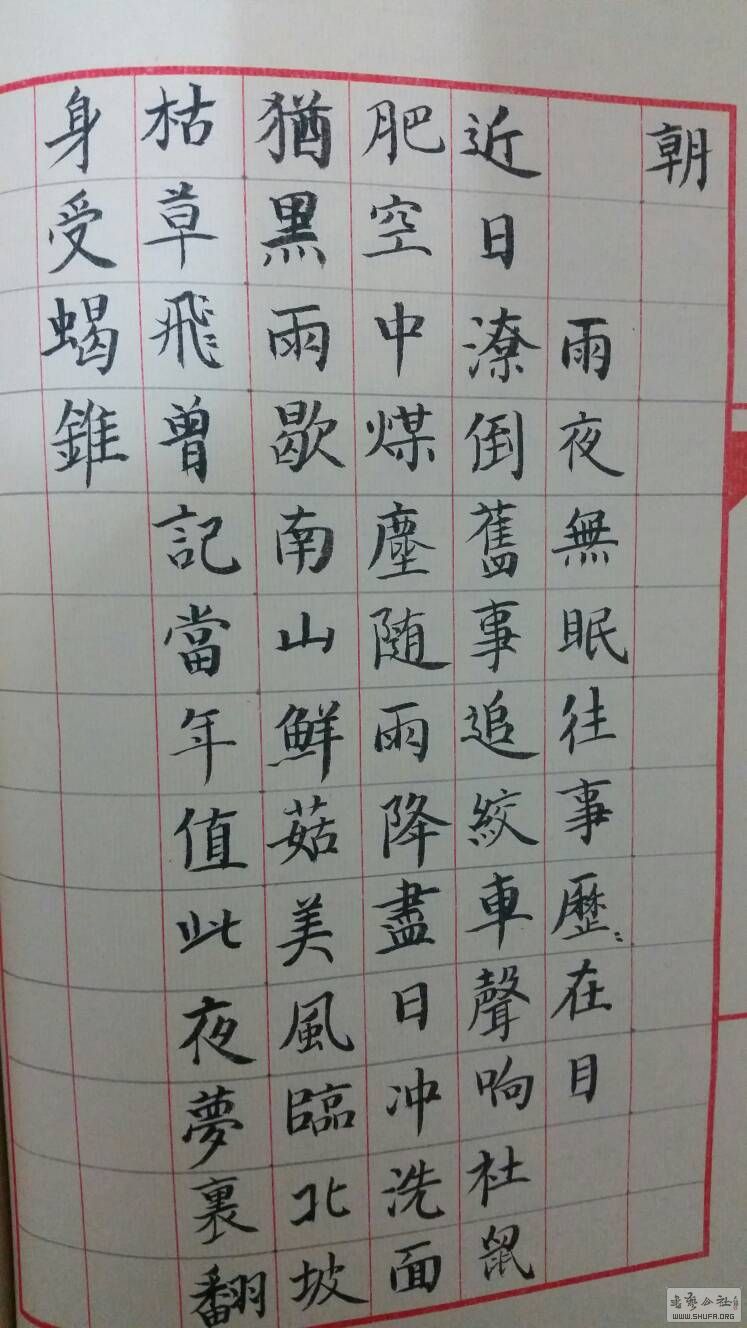 朝
雨夜無眠往事歷〻在目
近日潦倒舊事追絞車聲响杜鼠
肥空中煤塵随雨降盡日冲洗面
猶黑雨歇南山鮮菇美風臨北坡
枯草飛曾記當年值此夜夢裏翻
身受蝎錐
WWW.SHUFA.ORG